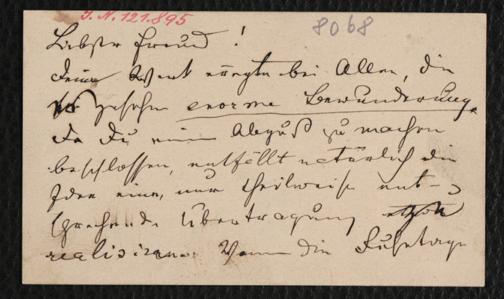 J. N. 121.895
8068
Liebster Freund!
Deine Werk erregte bei Allen, die
es gesehen enorme Bewunderung.
Da Du einen Abguß zu machen
beschlossen, entfällt natürlich die
Idee eine, nur theilweise ent-
sprechende Übertragung
realisieren. Wenn die Feiertage